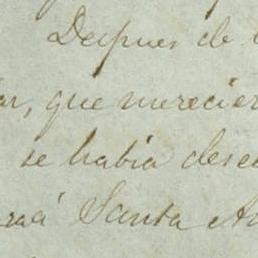 Despues de
ar, que merecier
se habia dese
raá Santa A